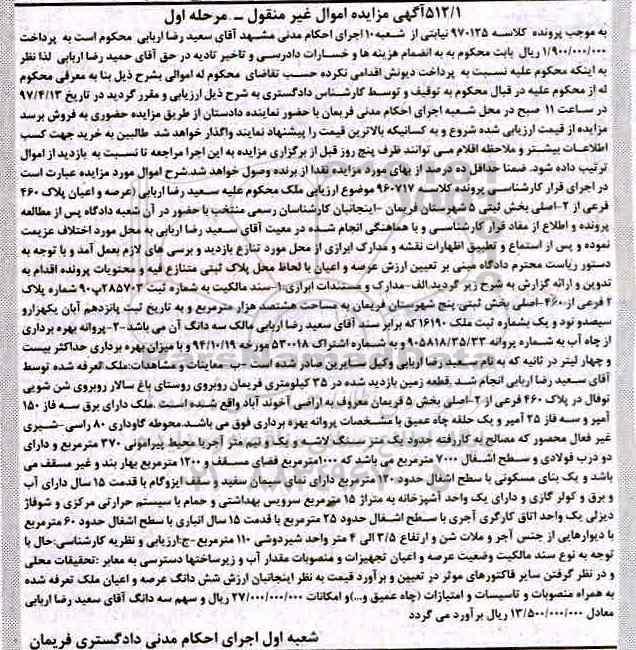 ۵۱۲/۱آگهی مزایده اموال غیر منقول ـ مرحله اول
به موجب پرونده کلاسه ۹۷۰۱۲۵ نیابتی از شعبه۱۰ اجرای احکام مدنی مشهد آقای سعید رضا اربابی محکوم است به پرداخت
۱/۹۰۰/۰۰۰/۰۰۰ ریال بابت محکوم به به انضمام هزینه ها و خسارات دادرسی و تاخیر تادیه در حق آقای حمید رضا اربابی لذا نظر
به اینکه محکوم علیه نسبت به پرداخت دیونش اقدامی نکرده حسب تقاضای محکوم له اموالی بشرح ذیل بنا به معرفی محکوم
له از محکوم علیه در قبال محکوم به توقیف و توسط کارشناس دادگستری به شرح ذیل ارزیابی و مقرر گردید در تاریخ ۹۷/۴/۱۳
در ساعت ۱۱ صبح در محل شعبه اجرای احکام مدنی فریمان با حضور نماینده دادستان از طریق مزایده حضوری به فروش برسد
مزایده از قیمت ارزیابی شده شروع و به کسانیکه بالاترین قیمت را پیشنهاد نمایند واگذار خواهد شد طالبین به خرید جهت کسب
اطلاعات بیشتر و ملاحظه اقلام می توانند ظرف پنج روز قبل از برگزاری مزایده به این اجرا مراجعه تا نسبت به بازدید از اموال
ترتیب داده شود. ضمنا حداقل ده درصد از بهای مورد مزایده نقدا از برنده وصول خواهد شد.شرح اموال مورد مزایده عبارت است
در اجرای قرار کارشناسی پرونده کلاسه ۹۶۰۷۱۷ موضوع ارزیابی ملک محکوم علیه سعید رضا اربابی (عرصه و اعیان پلاک ۴۶۰
فرعی از ۲-اصلی بخش ثبتی ۵ شهرستان فریمان -اینجانبان کارشناسان رسمی منتخب با حضور در آن شعبه دادگاه پس از مطالعه
پرونده و اطلاع از مفاد قرار کارشناسی و با هماهنگی انجام شده در معیت آقای سعید رضا اربابی به محل مورد اختلاف عزیمت
نموده و پس از استماع و تطبیق اظهارات نقشه و مدارک ابرازی از محل مورد تنازع بازدید و برسی های لازم بعمل آمد و با توجه به
دستور ریاست محترم دادگاه مبنی بر تعیین ارزش عرصه و اعیان با لحاظ محل پلاک ثبتی متنازع فیه و محتویات پرونده اقدام به
تدوین و ارائه گزارش به شرح زیر گردید.الف-مدارک و مستندات ابرازی:۱-سند مالکیت به شماره ثبت ۲۸۵۷۰۳پ۹۰ شماره پلاک
۲ فرعی از-۴۶۰اصلی بخش ثبتی پنج شهرستان فریمان به مساحت هشتصد هزار مترمربع و به تاریخ ثبت پانزدهم آبان یکهزارو
سیصدو نود و یک بشماره ثبت ملک ۱۶۱۹۰ که برابر سند آقای سعید رضا اربابی مالک سه دانگ آن می باشد-۲-پروانه بهره برداری
از چاه آب به شماره پروانه ۹۰۵۸۱۸/۳۵/۳۳ و به شماره اشتراک ۵۳۰۰۱۸ مورخه ۹۴/۱۰/۱۹ و با میزان بهره برداری حداکثر بیست
و چهار لیتر در ثانیه که به نام سعید رضا اربابی وکیل سایرین صادر شده است -ب-معاینات و مشاهدات:ملک تعرفه شده توسط
آقای سعید رضا اربابی انجام شد.قطعه زمین بازدید شده در ۳۵ کیلومتری فریمان روبروی روستای باغ سالار روبروی شن شویی
توفال در پلاک ۴۶۰ فرعی از ۲-اصلی بخش ۵ فریمان معروف به اراضی آخوند آباد واقع شده است .ملک دارای برق سه فاز ۱۵۰
آمپر و سه فاز ۲۵ آمپر و یک حلقه چاه عمیق با مشخصات پروانه بهره برداری فوق می باشد.محوطه گاوداری ۸۰ راسی-شیری
غیر فعال محصور که مصالح به کاررفته حدود یک متر سنگ لاشه و یک ونیم متر آجربا محیط پیرامونی ۳۷۰ مترمربع و دارای
دو درب فولادی و سطح اشغال ۷۰۰۰ مترمربع می باشد که ۱۰۰۰مترمربع فضای مسقف و ۱۲۰۰ مترمربع بهار بند و غیر مسقف می
باشد و یک بنای مسکونی با سطح اشغال حدود ۱۳۰ مترمربع دارای نمای سیمان سفید و سقف ایزوگام با قدمت ۱۵ سال دارای آب
و برق و کولر گازی و دارای یک واحد آشپزخانه به متراژ ۱۵ مترمربع سرویس بهداشتی و حمام با سیستم حرارتی مرکزی و شوفاژ
دیزلی یک واحد اتاق کارگری آجری با سطح اشغال حدود ۲۵ مترمربع با قدمت ۱۵ سال انباری با سطح اشغال حدود ۶۰ مترمربع
با دیوارهایی از جنس آجر و ملات شن و ارتفاع ۳/۵ الی ۴ متر واحد شیردوشی ۱۱۰ مترمربع-ج:ارزیابی و نظریه کارشناسی:حال با
توجه به نوع سند مالکیت وضعیت عرصه و اعیان تجهیزات و منصوبات مقدار آب و زیرساختها دسترسی به معابر :تحقیقات محلی
و در نظر گرفتن سایر فاکتورهای موثر در تعیین و برآورد قیمت به نظر اینجانبان ارزش شش دانگ عرصه و اعیان ملک تعرفه شده
به همراه منصوبات و تاسیسات و امتیازات (چاه عمیق و...)و امکانات ۲۷/۰۰۰/۰۰۰/۰۰۰ ریال و سهم سه دانگ آقای سعید رضا اربابی
معادل ۱۳/۵۰۰/۰۰۰/۰۰۰ ریال برآورد می گردد
شعبه اول اجرای احکام مدنی دادگستری فریمان